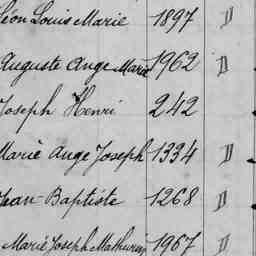 Léon Louis Marie 1897 D
Auguste Ange Marie 1962 D
Joseph Henri 242
Marie Ange Joseph 1334 D
Jean-Baptiste 1268 D
Marie Joseph Mathurin 1967 D